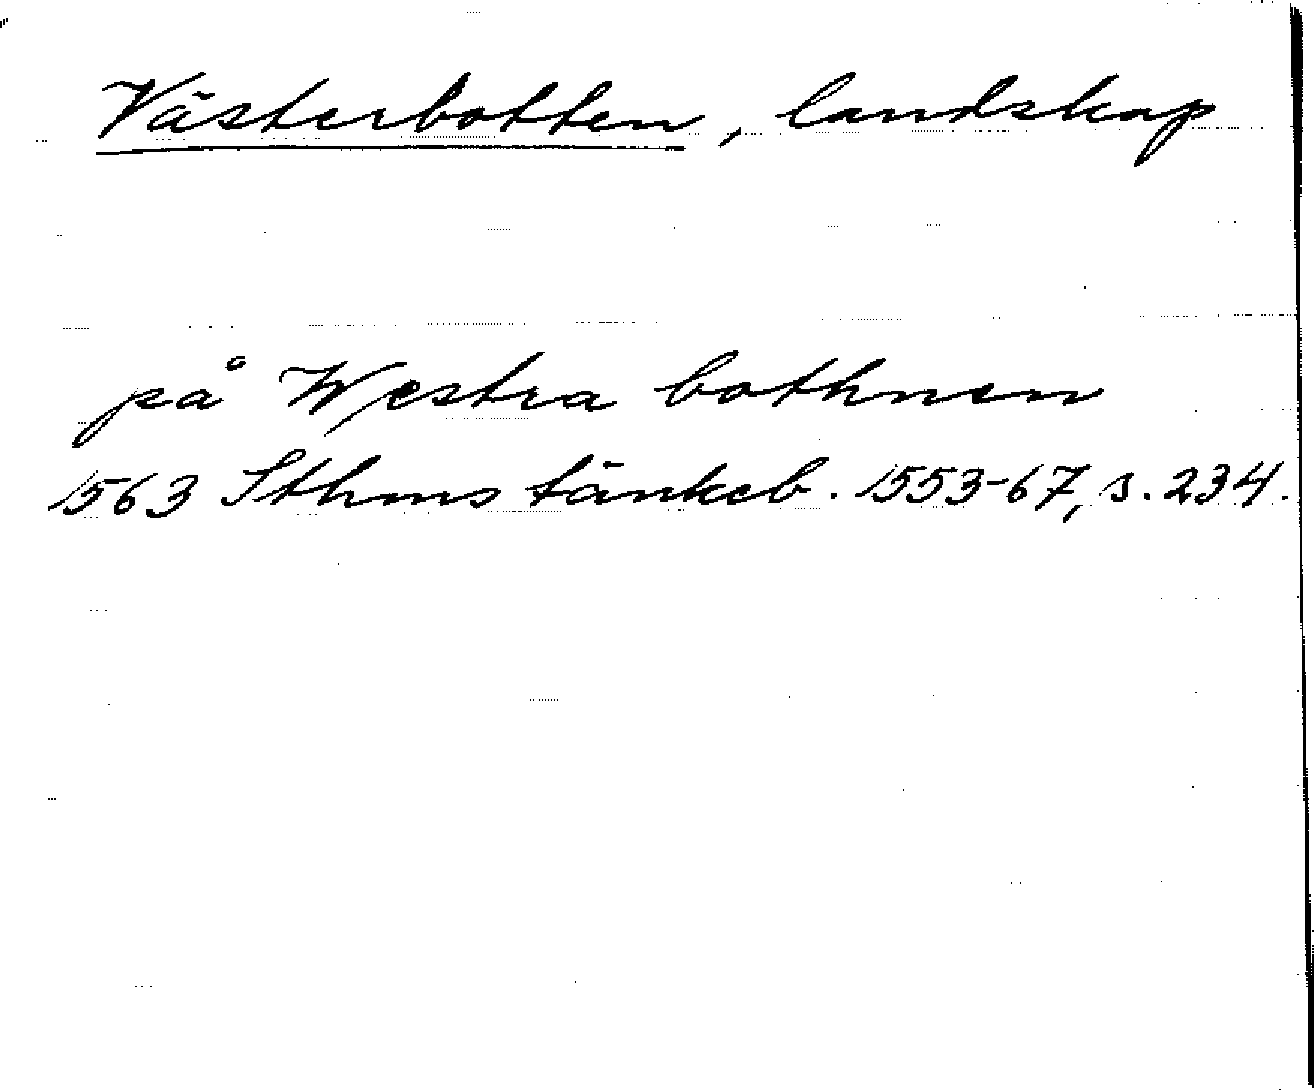 Västerbotten, landskap
på Westra bothnen
1563 Sthms tänkeb. 1553-67, s. 234.